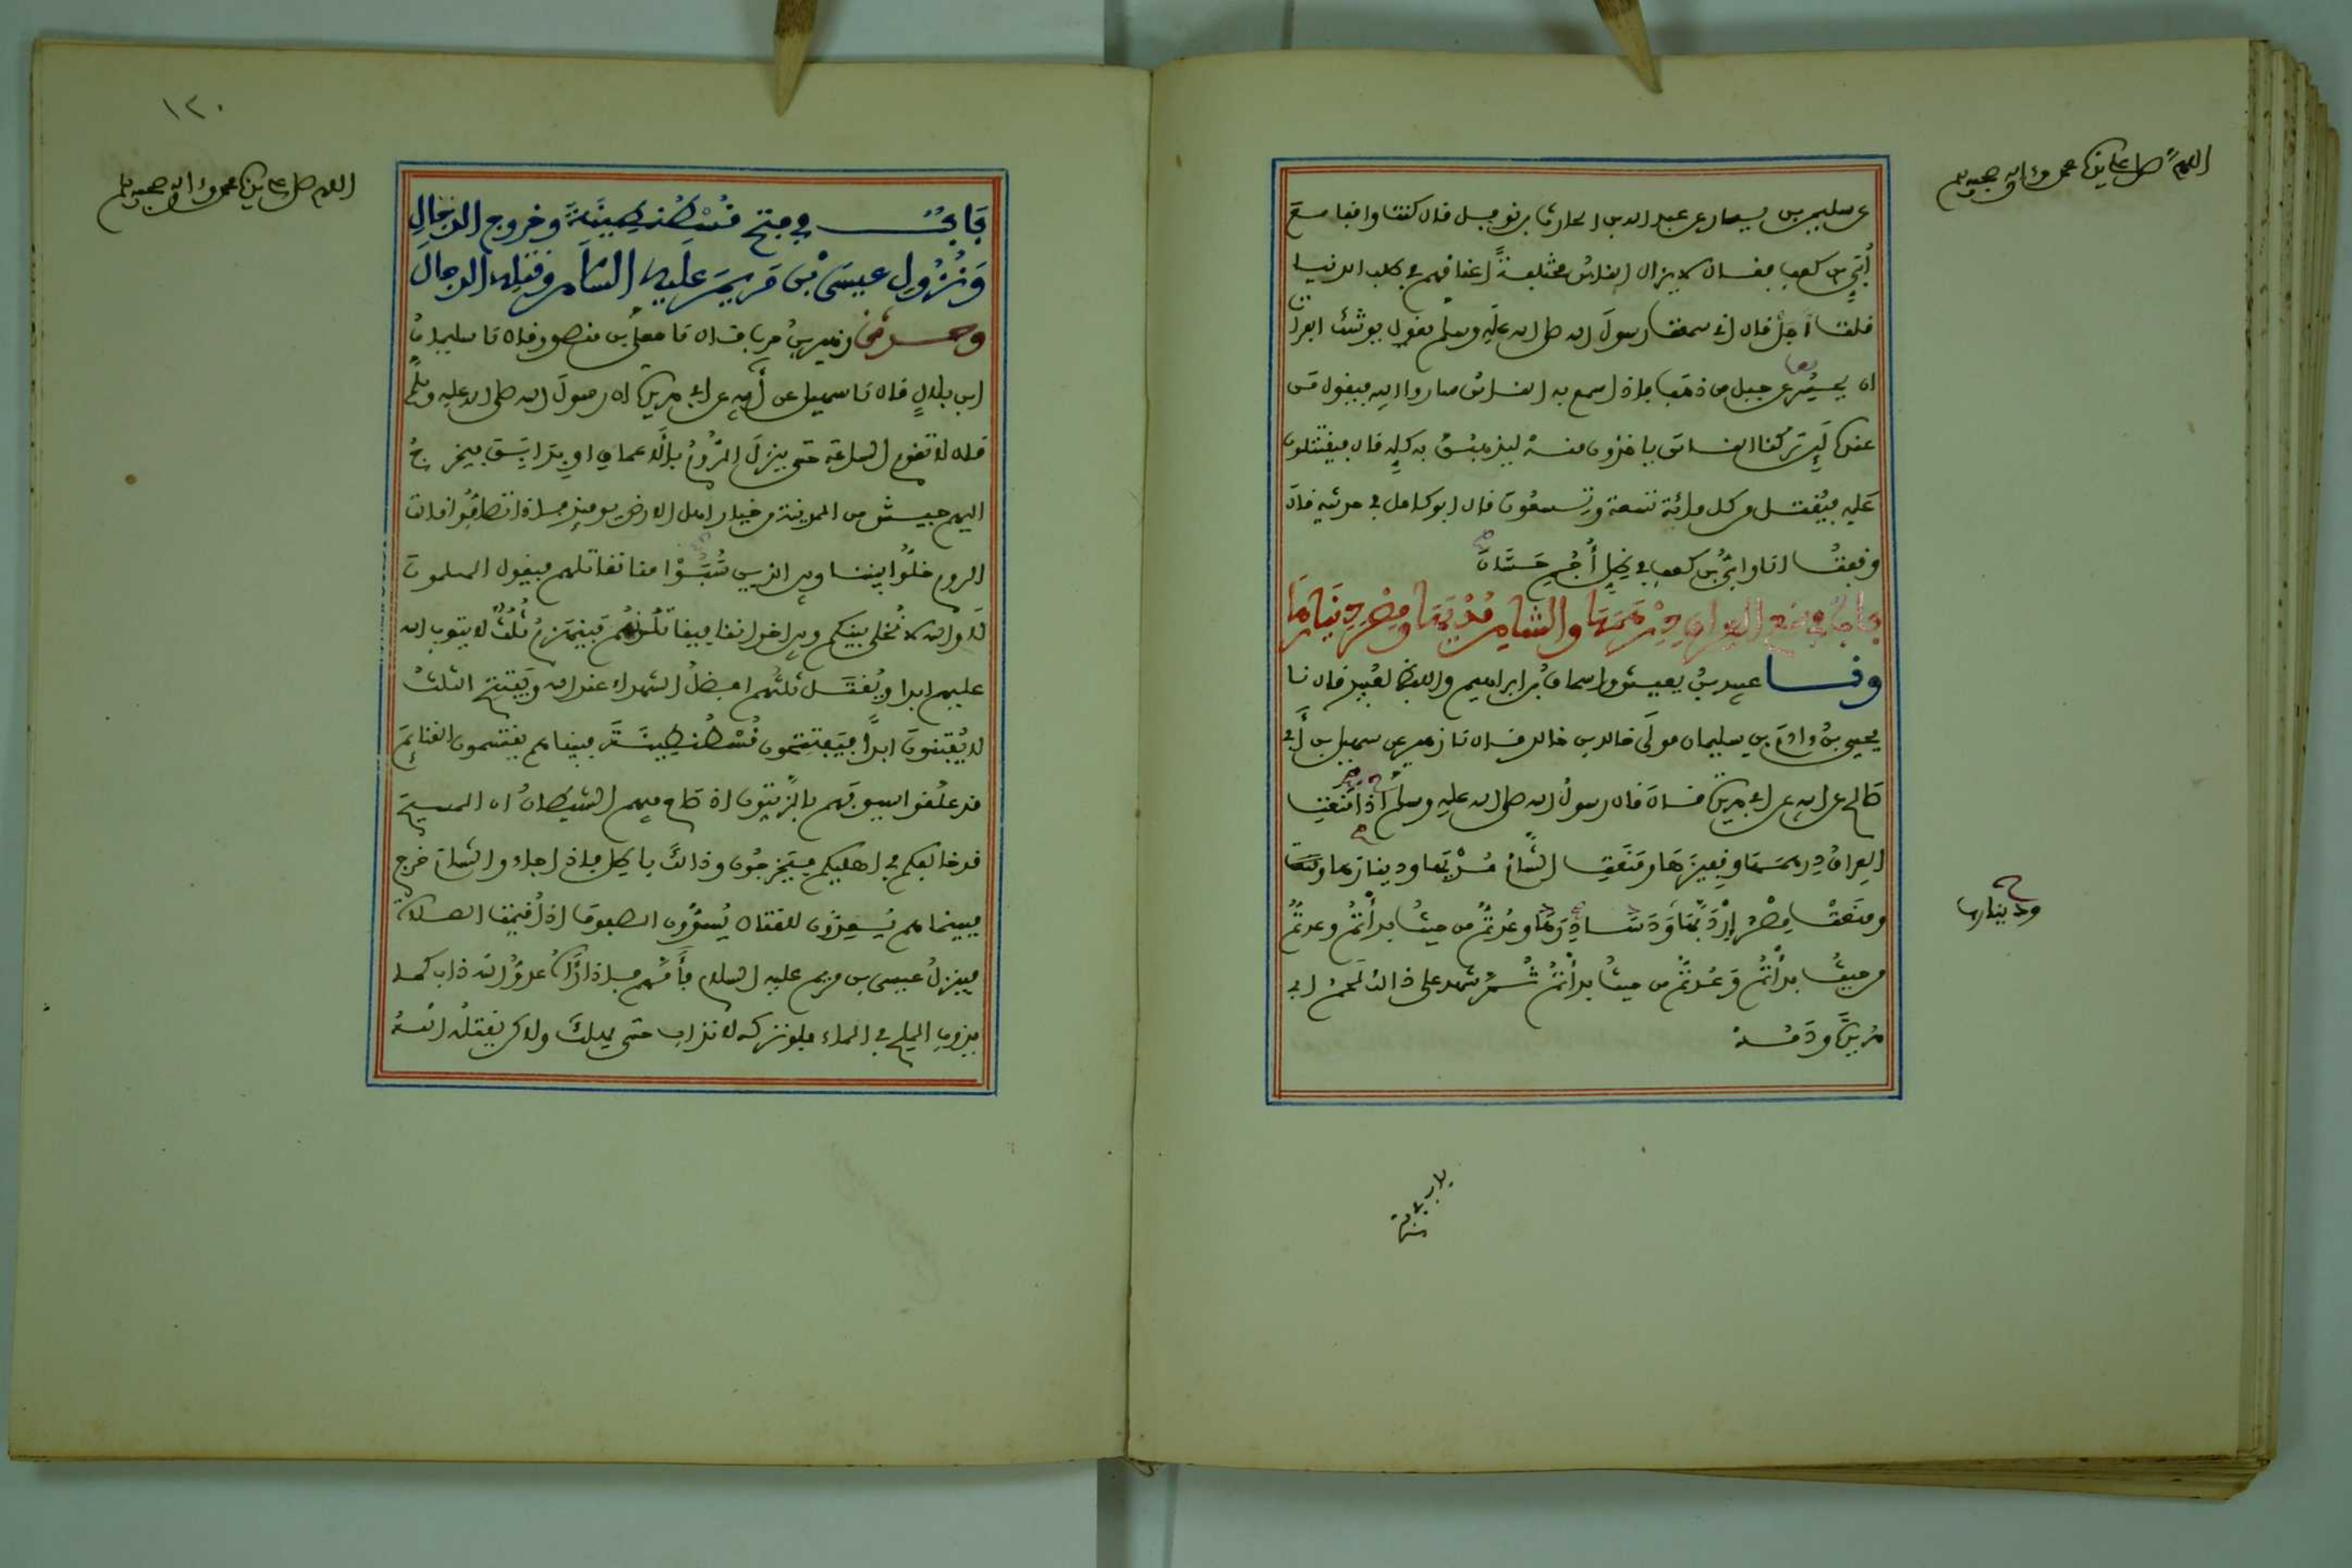 اللهم صل على سيدنا محمد وءاله وصحبه وسلم
عن سليمن بن يسار عن عبد الله بن الحارث بن نوفل قال كنت واقفا مع
أُبَيّ بن كعب فقال لا يزال الناس مختلفةً اعناقهم في طلب الدنيا
قلت أجل قال اني سمعت رسول الله صلى الله عليه وسلم يقول يوشك الفرات
ان يحسر عن جبل من ذهب فإذا سمع به الناس ساروا اليه فيقول من
عنده لَئِن تركنا الناس ياخذون منه ليذهبن به كلِه قال فيقتتلون
عليه فيُقتل من كل مائة تسعة وتسعون قال ابو كامل في حديثه قال
وقفت انا وابي بن كعب في ظِل أُجُم حَسَّان
باب في منع العراق دِرْهَمَهَا والشام مُدْيَهَا ومِصْر دِينَارهَا
ونا عبيد بن يعيش واسحاق بن ابراهيم واللفظ لعُبيد قال نا
يحيى بن ءادم بن سليمان مولى خالد بن خالد قال نا زهير عن سهيل بن أبي
صالح عن ابيه عن ابي هريرة قال قال رسول الله صلى الله عليه وسلم اذا مَنَعت
العراق دِرهمَها وقفيزَها ومَنَعت الشأم مُدْيَها ودينارها
ودينارها
ومنَعتْ مِصْرُ إِرْدَبَّهَا وَدينارَهَا وعُدتُم من حيثُ بدأتُمْ وعدتُم
من حيثُ بدأتُمْ وَعُدتُم من حيثُ بدأتُمْ شهد على ذالك لحمُ ابي
هُريرةَ ودَمُه
باب في فتح
١٢٠
اللهم صل على سيدنا محمد وءاله وصحبه وسلم
بَابٌ في فتح قُسْطُنطِينِيَّةَ وخروج الدجال
وَنُزُولِ عيسَى بْن مَرْيَمَ عَلَيه السَّلَام وقتله الدجالَ
وحدثني زهير بن حرب قال نا معلى بن منصور قال نا سليمان
ابن بلالٍ قال نا سهيل عن أبيه عن ابي هريرة ان رسولَ الله صلى الله عليه وسلم
قال لا تقوم الساعة حتى ينزلَ الرُّومُ بالأعماقِ او بِدَابِقَ فيخرجُ
اليهم جيش من المدينة من خيار اهل الارض يومئذ فإذا تصافُّوا قالت
الروم خلُّوا بيننا وبين الذين سُبُوْا منا نقاتلهم فيقول المسلمون
لا والله لا نُخلي بينكم وبين اخواننا فيقاتلونهُم فينهزمُ ثلثٌ لا يتوب الله
عليهم ابدا ويُقتَل ثلثُهم افضلُ الشهداء عند الله ويَفتتح الثلث
لا يُفتنونَ ابداً فيَفتتحون قُسْطُنطِينِيَّةَ فبينا هم يقتسمون الغنائم
قد علقوا سيوفهم بالزيتون اذ صاح فيهم الشيطانُ ان المسيح
قد خالفكم في اهليكم فيَخرجُون وذالك باطل فإذا جاءو الشام خرج
فبينما هم يُعِدُّون للقتال يُسوُّون الصفوف اذ أُقيمَت الصلاة
فينزلُ عيسى بن مريم عليه السلام فأَمَّهم فإذا رءاه عدوُّ الله ذاب كما
يذوب الملح في الماء فلو تركه لانذاب حتى يهلكَ ولاكن يَقتلُه اللهُ